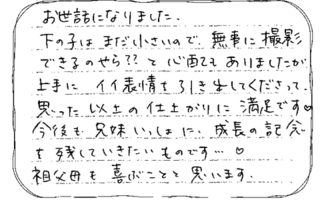 お世話になりました.
下の子はまだ小さいので、無事に撮影
できるのやら??と心配もありましたが
上手にイイ表情を引き出してくださって、
思った以上の仕上がりに満足です♡
今後も兄妹いっしょに、成長の記念
を残していきたいものです…♡
祖父母も喜ぶことと思います.